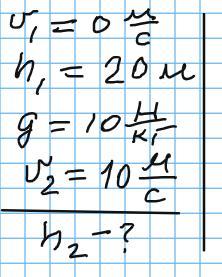 v₁ = 0 м/с
h₁ = 20 м
g = 10 Н/кг
v₂ = 10 м/с
h₂ - ?